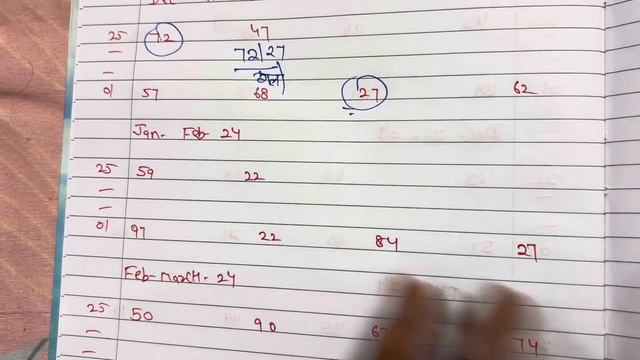 25 72 47
— 72|27
—
01 57 68 27 62
Jan- Feb- 24
25 59 22
—
—
01 97 22 84 27
Feb-march- 24
25 50 90 67
— 74
—